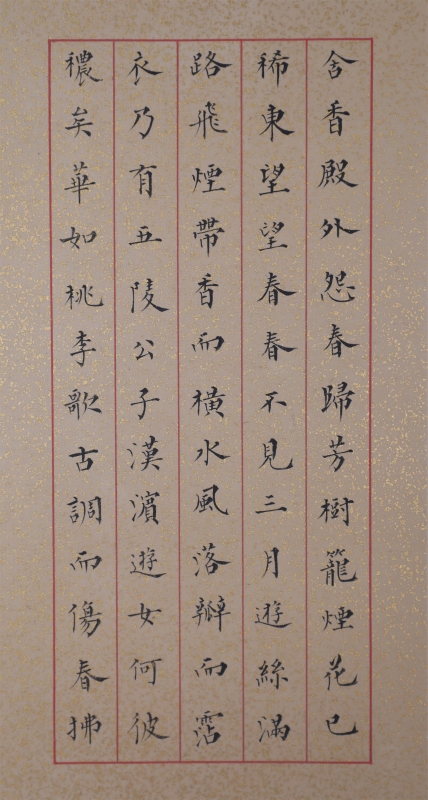 含香殿外怨春歸芳樹籠煙花已
稀東望望春春不見三月遊絲滿
路飛煙帶香而橫水風落瓣而霑
衣乃有五陵公子漢濱遊女何彼
穠矣華如桃李歌古調而傷春拂